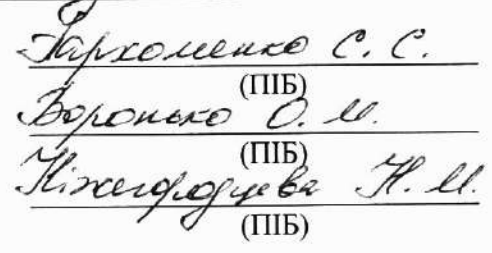 Пархоменко С. С.
(ПІБ)
Воронько О. М.
(ПІБ)
Ніжегородцева Н. М.
(ПІБ)